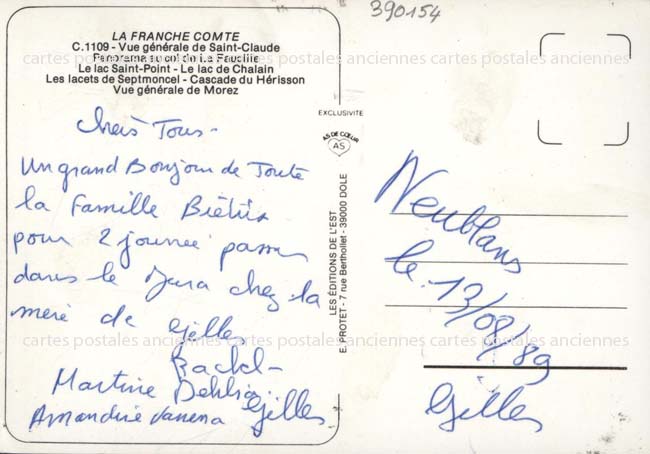 390154
LA FRANCHE COMTE
C.1109 - Vue générale de Saint-Claude
Panorama au col de La Faucille
Le lac Saint-Point - Le lac de Chalain
Les lacets de Septmoncel - Cascade du Hérisson
Vue générale de Morez
cartes postales anciennes cartes postales anciennes cartes postales anciennes
EXCLUSIVITE
AS DE COEUR
AS
LES ÉDITIONS DE L'EST
E. PROTET - 7 rue Berthollet - 39000 DOLE
Chers Tous -
Un grand Bonjour de Toute
la Famille
pour 2 journée
dans le Jura chez la
mère de Gilles
Martine
Amandine Vanena Gilles
cartes postales anciennes cartes postales anciennes cartes postales anciennes
Neublans
le 13/08/89
Gilles